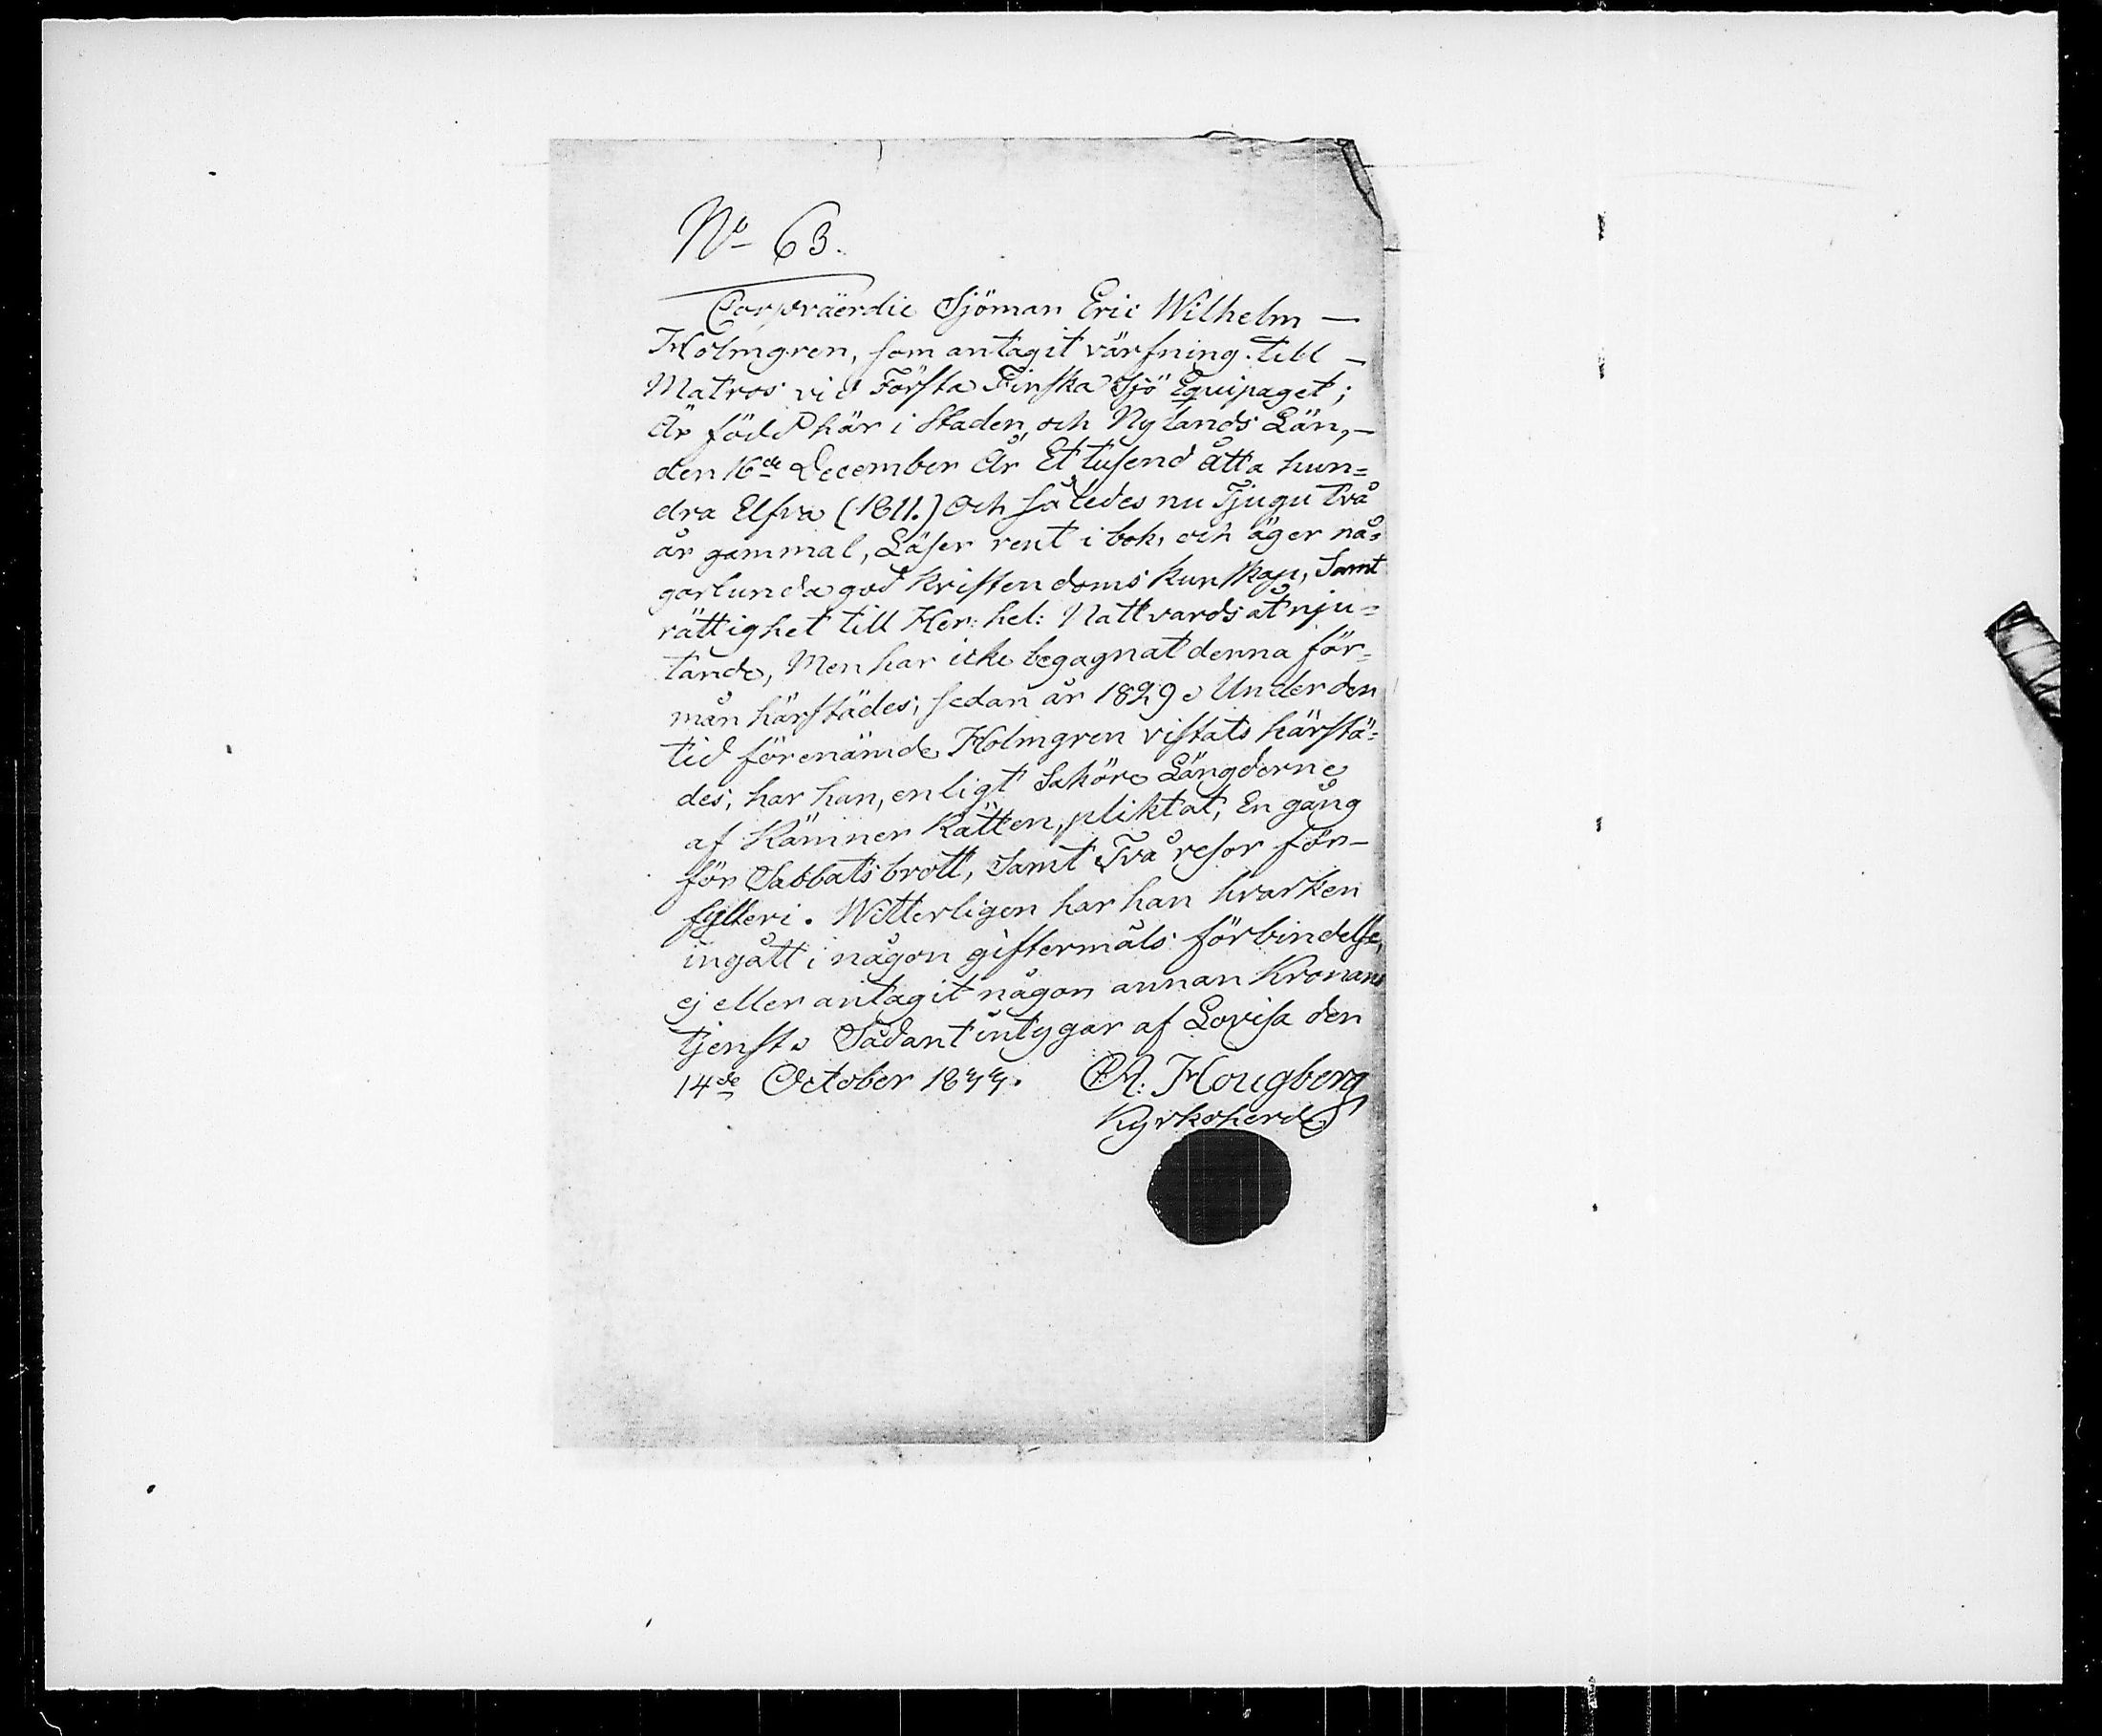 No 63.
Coopväerdie Sjöman Eric Wilhelm —
Holmgren, som antagit värfning till —
Matros vid Första Finska Sjö Equipaget;
Är född här i Staden och Nylands Län, —
den 16de December År Et tusend åtta hun=
dra Elfva (1811.) Och således nu Tjugu två
år gammal, Läser rent i bok, och äger nå=
gorlunda god Kristendoms kunskap, Samt
rättighet till Her: hel: Nattvards åtnju=
tande, Men har icke begagnat denna för=
mån härstädes, sedan år 1829. Under den
tid förenämde Holmgren vistats härstä=
des, har han, enligt Saköre Längderne
af Kämner Rätten, pliktat, En gång
för Sabbatsbrott, Samt Två resor för —
fylleri. Witterligen har han hvarken
ingått i någon giftermåls förbindelse,
ej eller antagit någon annan Kronans
tjenst. Sådant intygar af Lovisa den
14de October 1833. A: Hougberg
Kyrkoherde